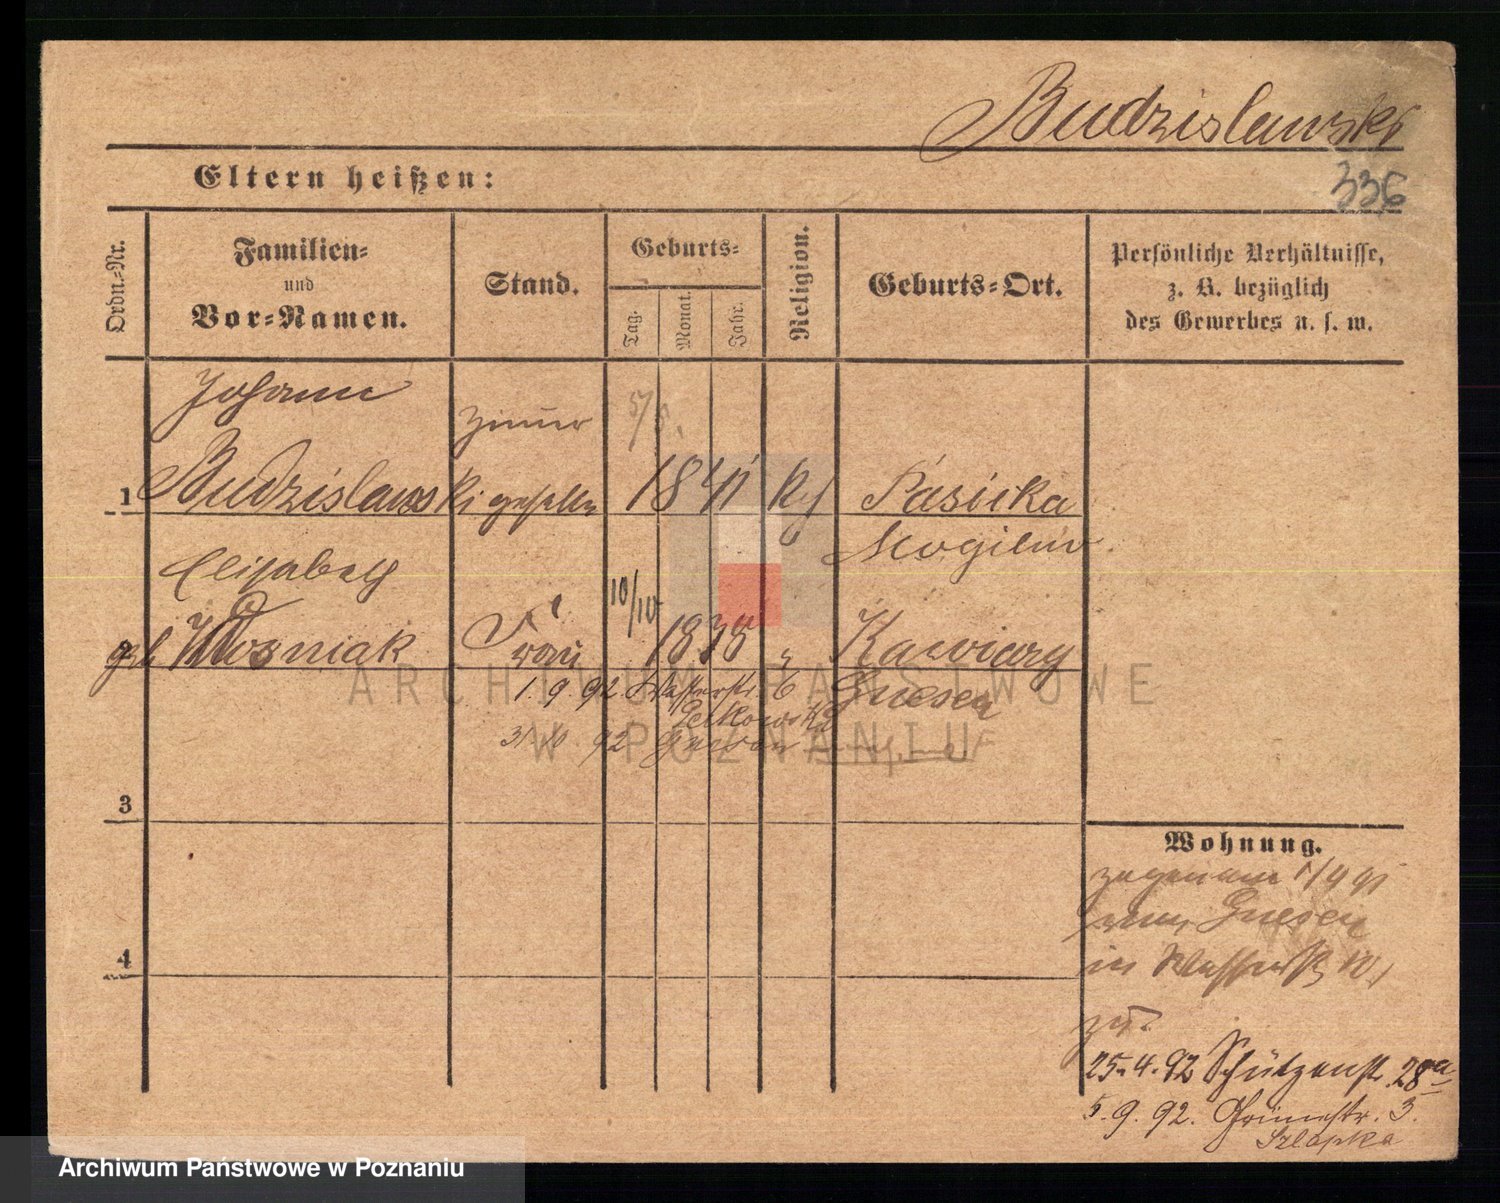 Budzislawski
336
Eltern heißen:
Ordn.-Nr.
Familien-
und
Vor-Namen.
Stand.
Geburts-
Tag.
Monat.
Jahr.
Religion.
Geburts-Ort.
Persönliche Verhältnisse,
z. B. bezüglich
des Gewerbes u. s. w.
Johann
Zimmer
5/5.
1 Budzislawski gesellen 1841 Pasieka
Mogilno.
Elisabeth
10/10
2 geb Wosniak Frau Kawiary
1.9.92. 6 Gnesen
92
3
4
ARCHIWUM PAŃSTWOWE
W POZNANIU
Wohnung.
zugezogen 1/4 91
von Gnesen
in
zu
25.4.92 Schützenstr. 28a
5.9.92. 3.
Szlapka
Archiwum Państwowe w Poznaniu